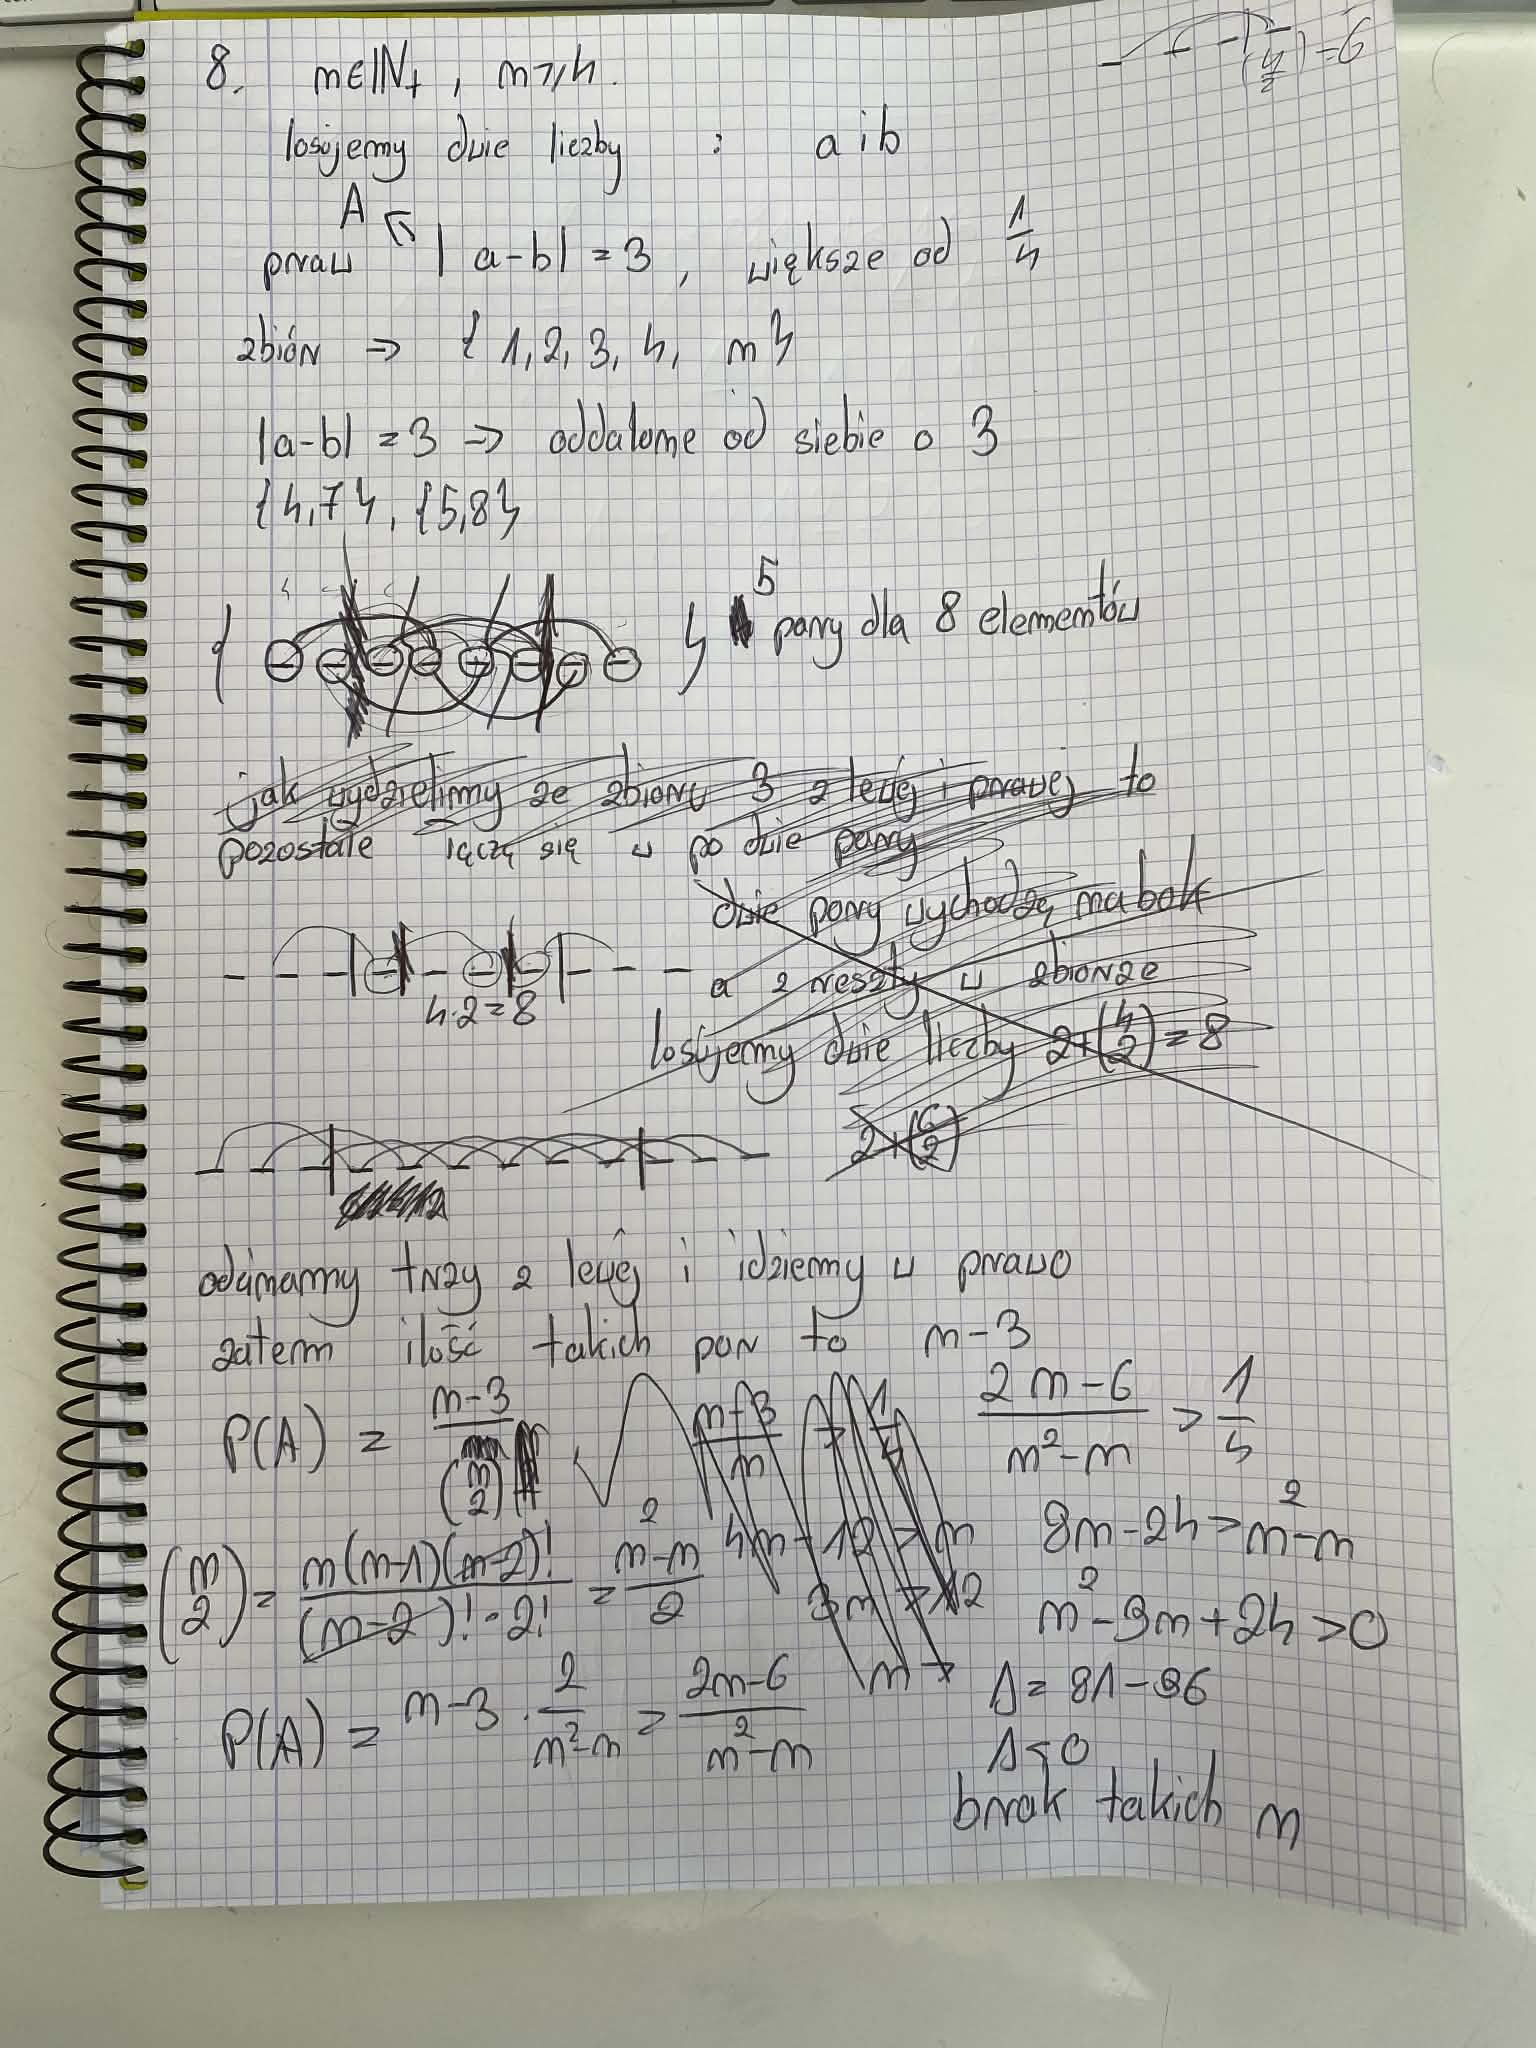 (4/2) = 6
8. n∈ℕ₊, n ≥ 4.
losujemy dwie liczby : a i b
A
praw |a-b| = 3, większe od 1/4
zbiór → {1, 2, 3, 4, n}
|a-b| = 3 → oddalone od siebie o 3
{4,7}, {5,8}
{ } 5 pary dla 8 elementów
jak wydzielimy ze zbioru 3 z lewej i prawej to
pozostałe łączą się w po dwie pary
dwie pary wychodzą na bok
a z reszty w zbiorze
4·2=8
losujemy dwie liczby 2+(4/2)=8
2+(6/2)
odcinamy trzy z lewej i idziemy w prawo
zatem ilość takich par to n-3
P(A) = (n-3)/(n/2) (n-3)/n > 1/4 (2n-6)/(n²-n) > 1/4
(n/2) = n(n-1)(n-2)!/(n-2)!·2! = (n²-n)/2 4n-12 > n 8n-24 > n²-n
3n > 12 n²-9n+24 > 0
P(A) = n-3 · 2/(n²-n) = (2n-6)/(n²-n) n > Δ = 81-96
Δ < 0
brak takich n